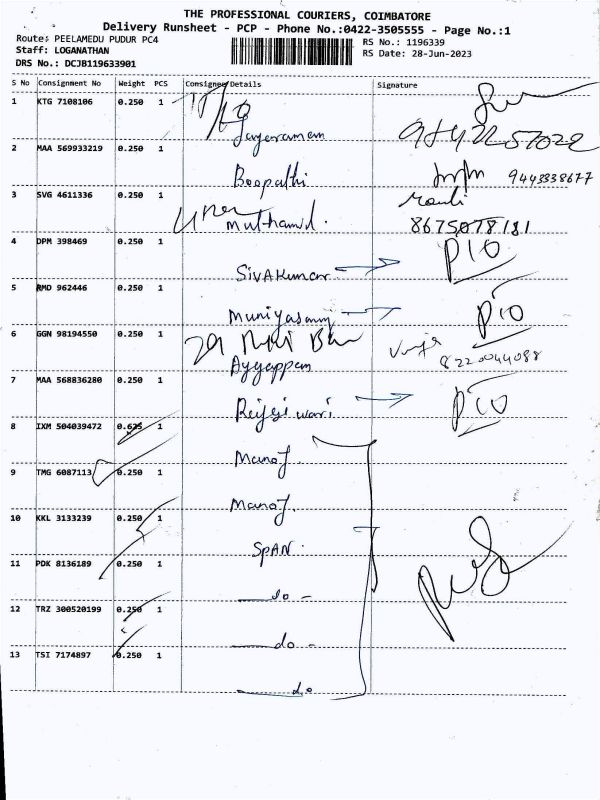 THE PROFESSIONAL COURIERS, COIMBATORE
Delivery Runsheet - PCP - Phone No.:0422-3505555 - Page No.:1
Route: PEELAMEDU PUDUR PC4
RS No.: 1196339
Staff: LOGANATHAN
RS Date: 28-Jun-2023
DRS No.: DCJB119633901
S No Consignment No Weight PCS Consignee Details Signature
1 KTG 7108106 0.250 1
Jayaraman
2 MAA 569933219 0.250 1
Boopathi 9443338677
3 SVG 4611336 0.250 1
Muthamil. 8675078181
4 DPM 398469 0.250 1 P10
SivaKumar
5 RMD 962446 0.250 1 P10
Muniyasamy
6 GGN 98194550 0.250 1
Ayyappan 8220044088
7 MAA 568836280 0.250 1 P10
8 IXM 504039472 0.625 1
Manoj
9 TMG 6087113 0.250 1
Manoj.
10 KKL 3133239 0.250 1
SPAN.
11 PDK 8136189 0.250 1
do -
12 TRZ 300520199 0.250 1
do -
13 TSI 7174897 0.250 1
do